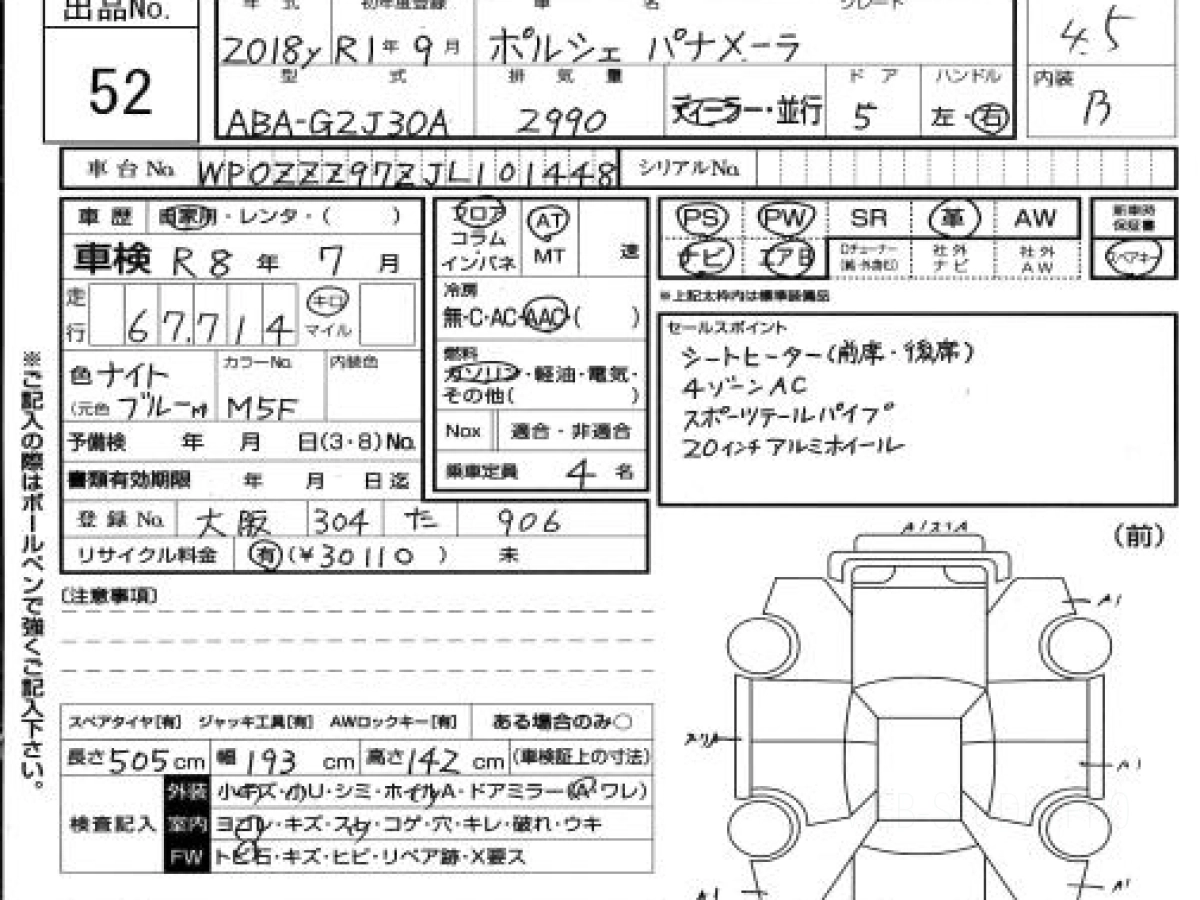 出品No.
52
年 式
初年度登録
車 名
グレード
2018y R1年 9月 ポルシェ パナメーラ
4.5
型 式
排 気 量
ディーラー・並行
ド ア
5
ハンドル
左・右
内装
B
ABA-G2J30A
2990
車台No. WP0ZZZ97ZJL101448
シリアルNo.
車 歴 自家用・レンタ・( )
車検 R8年 7月
走行 67,714 キロ マイル
色 ナイト
(元色 ブルーM
カラーNo.
M5F
内装色
予備検 年 月 日(3・8)No.
書類有効期限 年 月 日迄
登録No. 大阪 304 た 906
リサイクル料金 有(¥30110 ) 未
フロア
コラム
インパネ
AT
MT
速
冷房
無・C・AC・AAC・( )
燃料
ガソリン・軽油・電気・
その他( )
Nox 適合・非適合
乗車定員 4 名
PS PW SR 革 AW
ナビ エアB
社外ナビ
社外AW
新車時保証書
スペアキー
※上記太枠内は標準装備品
セールスポイント
シートヒーター(前席・後席)
4ゾーンAC
スポーツテールパイプ
20インチアルミホイール
※ご記入の際はボールペンで強くご記入下さい。
(注意事項)
(前)
A1
A1
A1
A1
スペアタイヤ[有] ジャッキ工具[有] AWロックキー[有] ある場合のみ○
長さ505cm 幅193cm 高さ142cm (車検証上の寸法)
検査記入
外装 小キズ・小U・シミ・ホイルA・ドアミラー(A・ワレ)
室内 ヨゴレ・キズ・スレ・コゲ・穴・キレ・破れ・ウキ
FW トビ石・キズ・ヒビ・リペア跡・X要ス